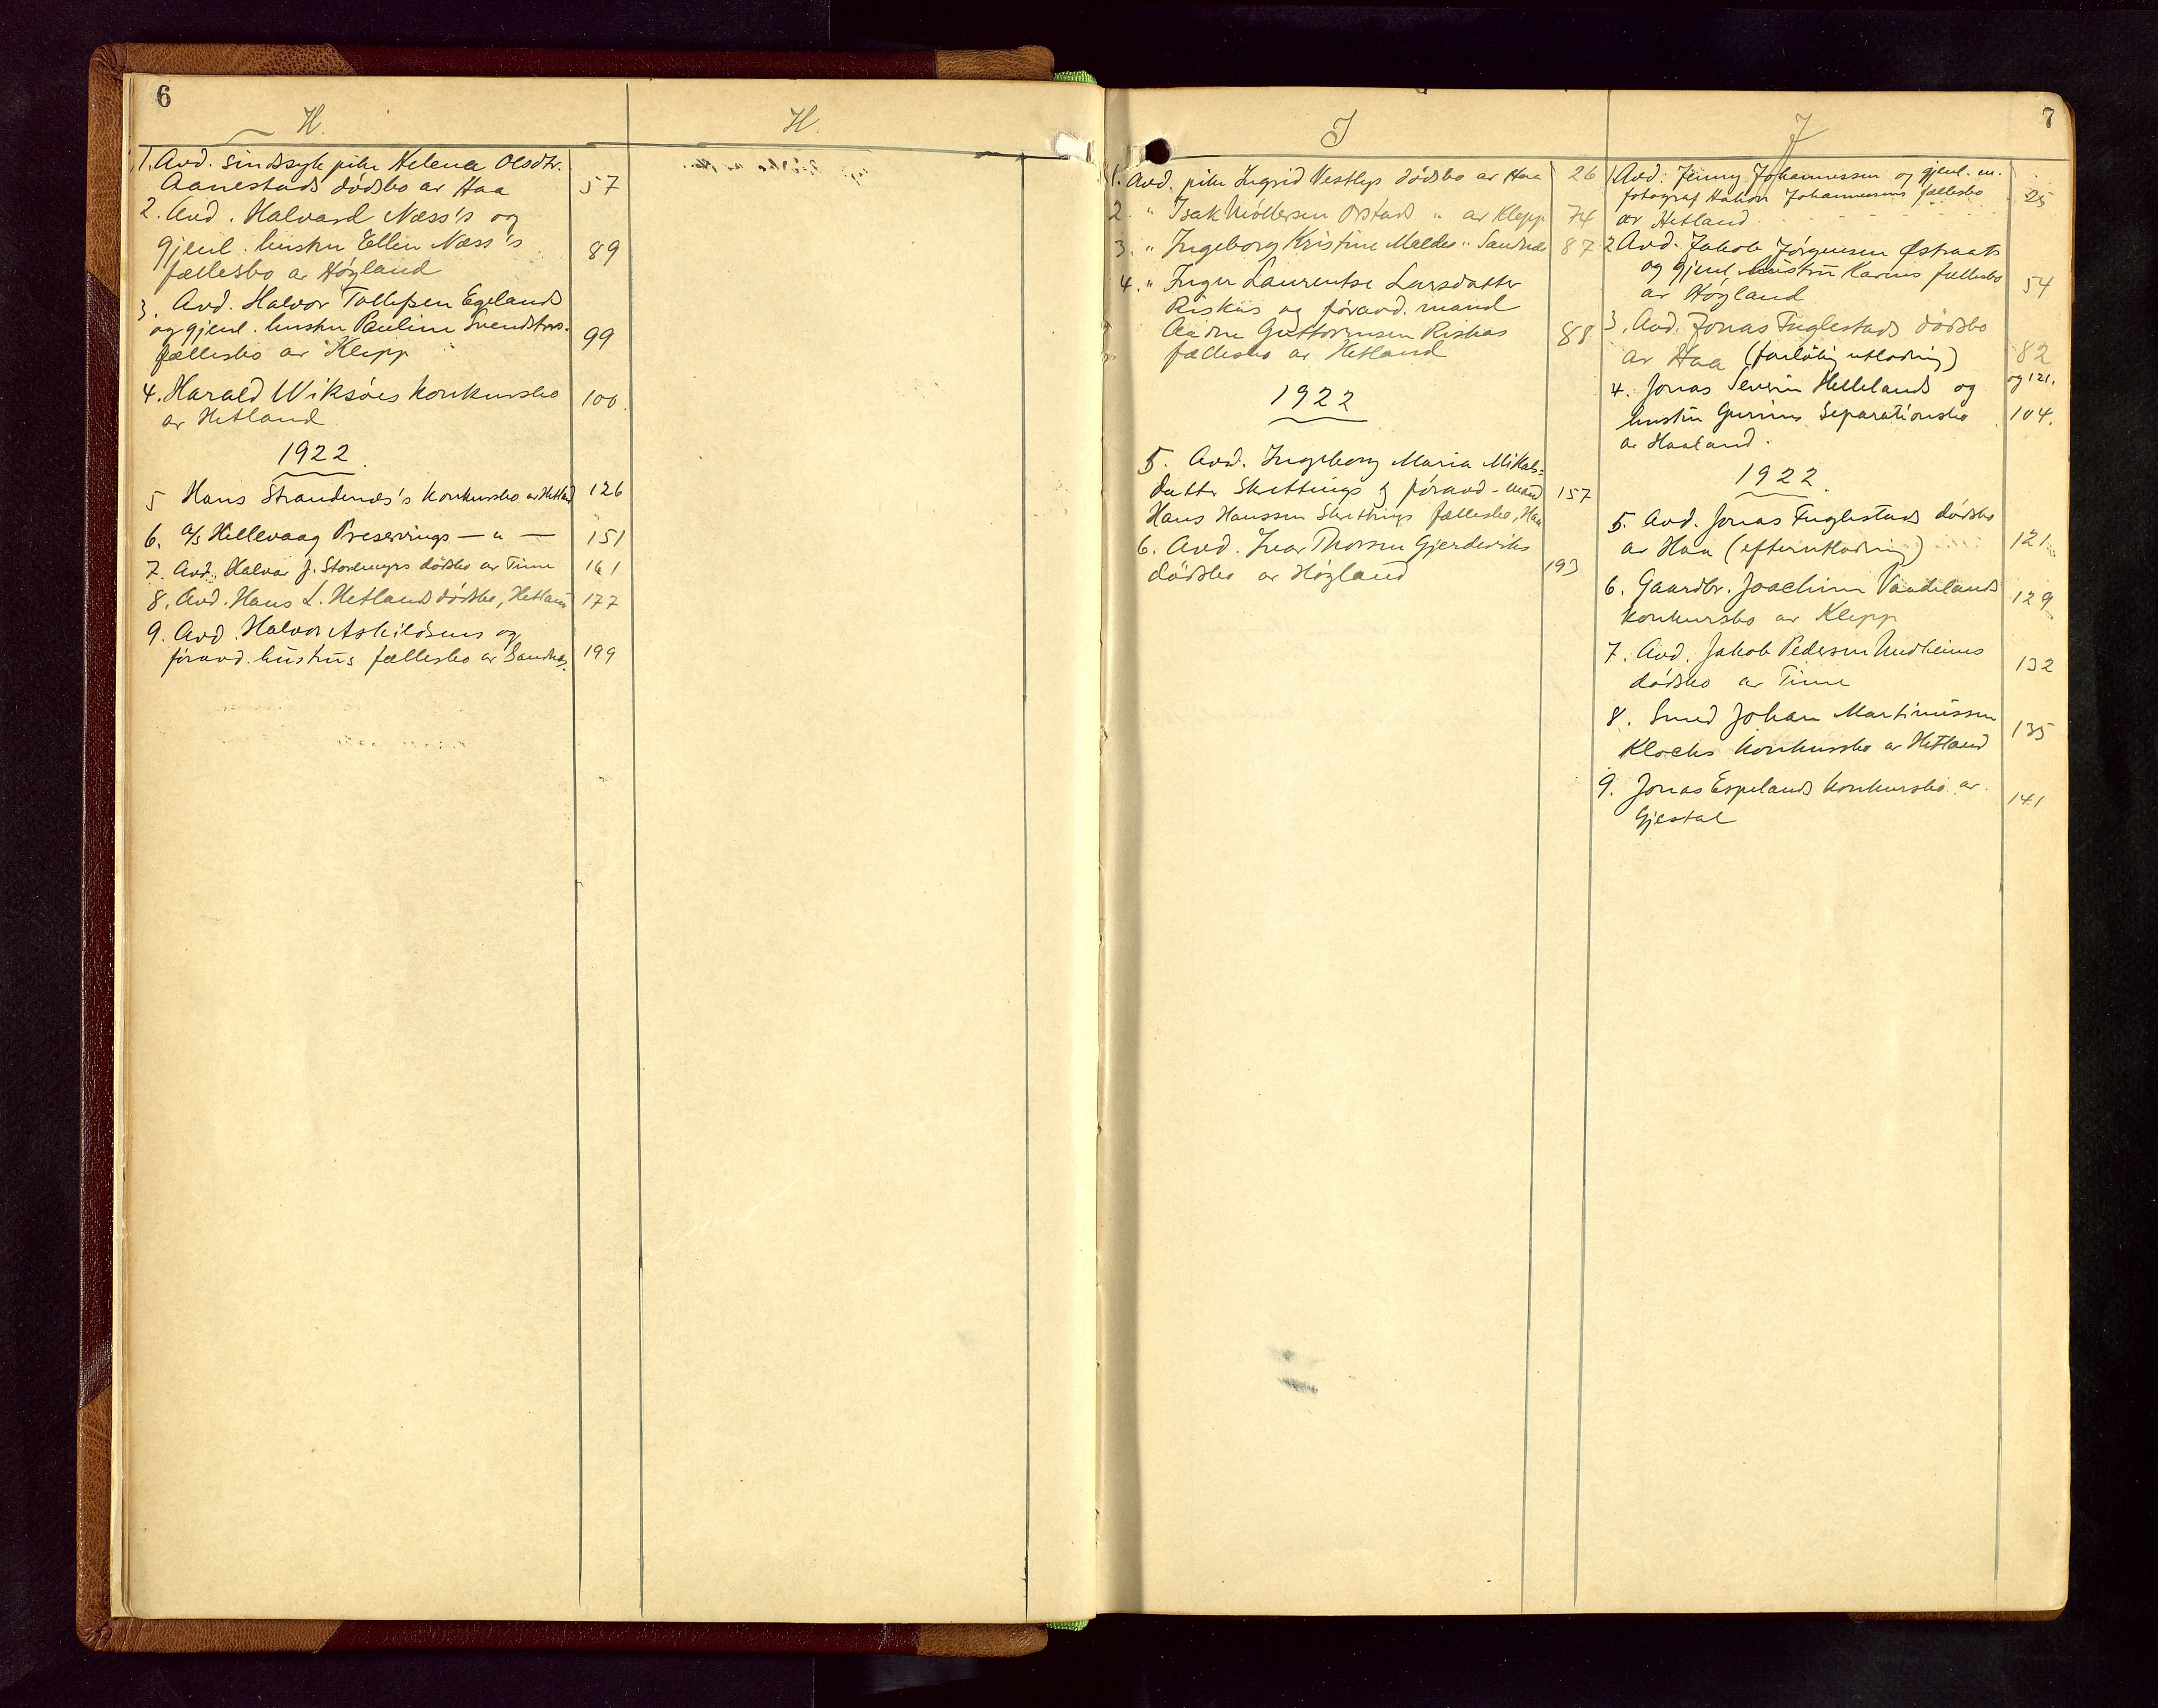 6
H.
1. Avd. sindssyk pike Helena Olsdtr.
Aanestads dødsbo av Haa 57
2. Avd. Halvard Næss's og
gjenl. hustru Ellen Næss's 89
fællesbo av Høyland
3. Avd. Halvor Tollefsen Egelands
og gjenl. hustru Pauline Svendsdtrs. 99
fællesbo av Klepp
4. Harald Wiksøes konkursbo 100.
av Hetland
1922.
5 Hans Strandenæs's konkursbo av Hetland 126
6. A/S Hillevaag Preservings — " — 151
7. Avd. Halvar J. Storemyrs dødsbo av Time 161
8. Avd. Hans L. Hetlands dødsbo, Hetland 177
9. Avd. Halvor Askildsens og
foravd. hustrus fællesbo av Sandnes. 199
H.
I
1. Avd. pike Ingrid Vestlys dødsbo av Haa 26
2. " Isak Orstads " av Klepp 74
3. " Ingeborg Kristine Maldes " Sandnes 87
4. " Inger Laurentse Larsdatter
Riskas og foravd. mand
Guttormsen Riskas 88
fællesbo av Hetland
1922
5. Avd. Ingeborg Maria Mikals=
datter Skrettings og foravd. mand 157
Hans Hanssen Skrettings fællesbo, Haa
6. Avd. Ivar Thorsen Gjerdeviks
dødsbo av Høyland 193
7
J
1 Avd. Jenny Johannessen og gjenl. m.
fotograf Hakon Johannesens fællesbo 25
av Hetland
2 Avd. Jakob Jørgensen Østraats
og gjenl. hustru Karens fællesbo 54
av Høyland
3. Avd. Jonas Fuglestads dødsbo
av Haa (foreløbig utlodning) 82
og 121.
4. Jonas Severin Hellelands og
hustru Gurines Separationsbo 104.
av Haaland.
1922.
5. Avd. Jonas Fuglestads dødsbo
av Haa (efterutlodning) 121
6. Gaardbr. Joachim Vaadelands 129
konkursbo av Klepp
7. Avd. Jakob Pedersen Undheims 132
dødsbo av Time
8. Smed Johan Martinussen
Klocks konkursbo av Hetland 135
9. Jonas Espelands konkursbo av 141
Gjestal